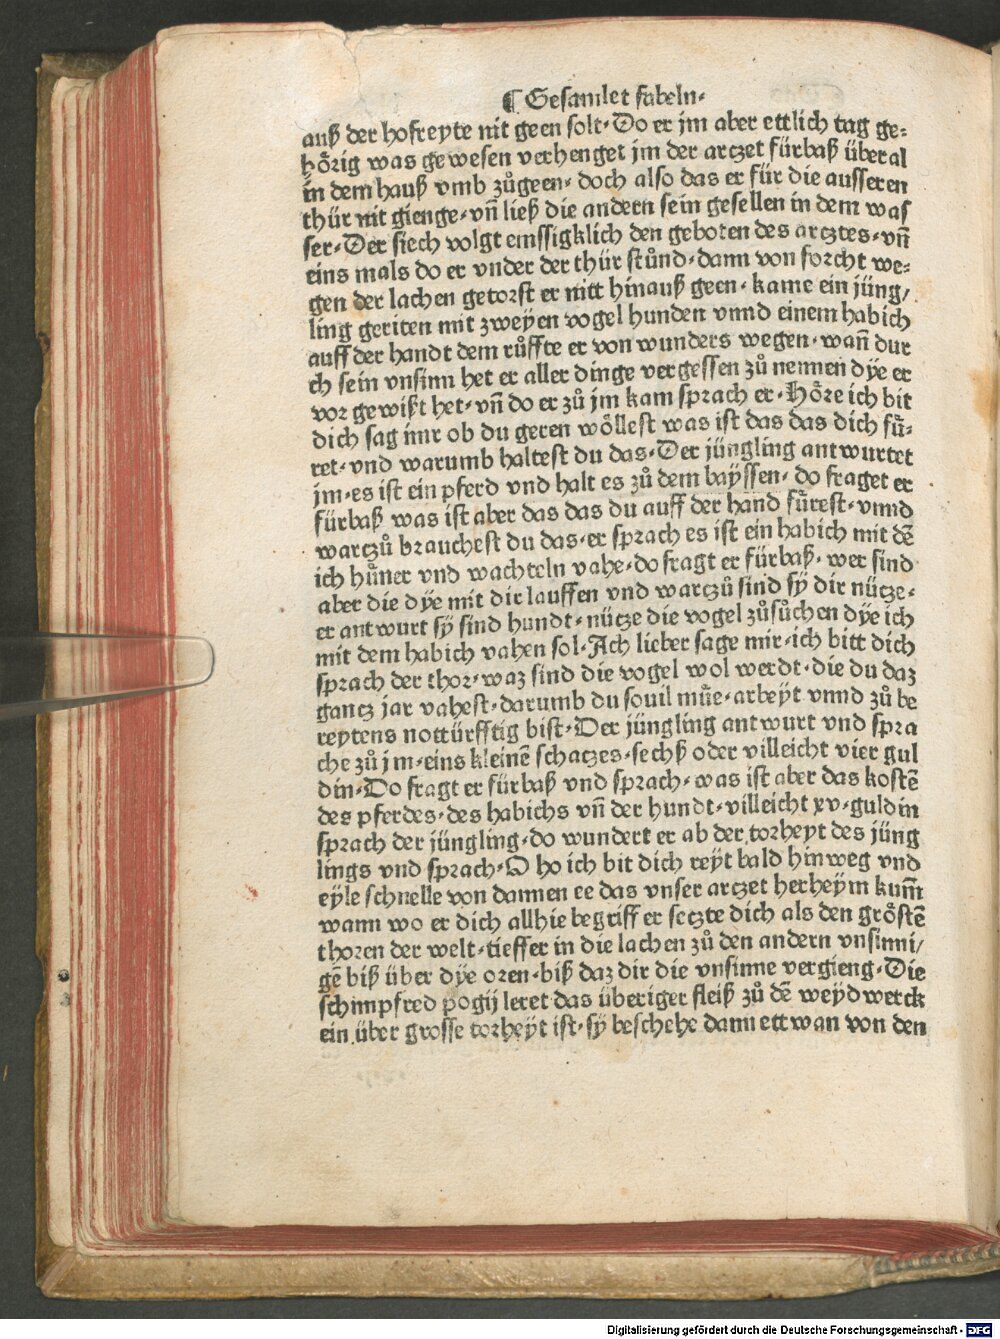 ¶ Gesamlet fabeln.
auß der hofreyte nit geen solt. Do er jm aber ettlich tag ge⸗
hoͤrig was gewesen verhenget jm der arczet fürbaß überal
in dem hauß vmb zůgeen. doch also das er für die ausseren
thür nit gienge. vnd̄ ließ die andern sein gesellen in dem was
ser. Der siech volgt emssigklich den geboten des arcztes. vn̄
eins mals do er vnder der thür stůnd. dann von forcht we⸗
gen der lachen getorst er nitt hinauß geen. kame ein jüng/
ling geriten mit zweyen vogel hunden vnnd einem habich
auff der handt dem růffte er von wunders wegen. wan̄ dur
ch sein vnsinn het er aller dinge vergessen zů nennen dÿe er
vor gewißt het. vn̄ do er zů jm kam sprach er. Hoͤre ich bit
dich sag mir ob du geren woͤllest was ist das das dich fuͤ⸗
ret. vnd warumb haltest du das. Der jüngling antwurtet
jm. es ist ein pferd vnd halt es zů dem baÿssen. do fraget er
fürbaß was ist aber das das du auff der hand fuͤrest. vnnd
warczů brauchest du das. er sprach es ist ein habich mit dē
ich huͤner vnd wachteln vahe. do fragt er fürbaß. wer sind
aber die dÿe mit dir lauffen vnd warczů sind sÿ dir nücze.
er antwurt sÿ sind hundt. nücze die vogel zůsůchen dÿe ich
mit dem habich vahen sol. Ach lieber sage mir. ich bitt dich
sprach der thor. waz sind die vogel wol werdt. die du daz
gancz jar vahest. darumb du souil muͤe. arbeÿt vnnd zů be
reytens nottürfftig bist. Der jüngling antwurt vnd spra
che zů jm. eins kleinē schaczes. sechß oder villeicht vier gul
din. Do fragt er fürbaß vnd sprach. was ist aber das kostē
des pferdes. des habichs vn̄ der hundt. villeicht xv. guldin
sprach der jüngling. do wundert er ab der torheyt des jüng
lings vnd sprach. O ho ich bit dich reÿt bald hinweg vnd
eÿle schnelle von dannen ee das vnser arczet herheÿm kum̄t
wann wo er dich allhie begriff er seczte dich als den groͤstē
thoren der welt. tieffer in die lachen zů den andern vnsinni/
gē biß über dÿe oren. biß daz dir die vnsinne vergieng. Die
schimpfred pogij leret das überiger fleiß zů dē weÿdwerck
ein über grosse torheÿt ist. sÿ beschehe dann ettwan von den
Digitalisierung gefördert durch die Deutsche Forschungsgemeinschaft - DFG